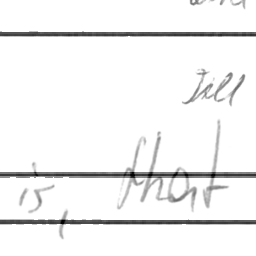 Till
is, that